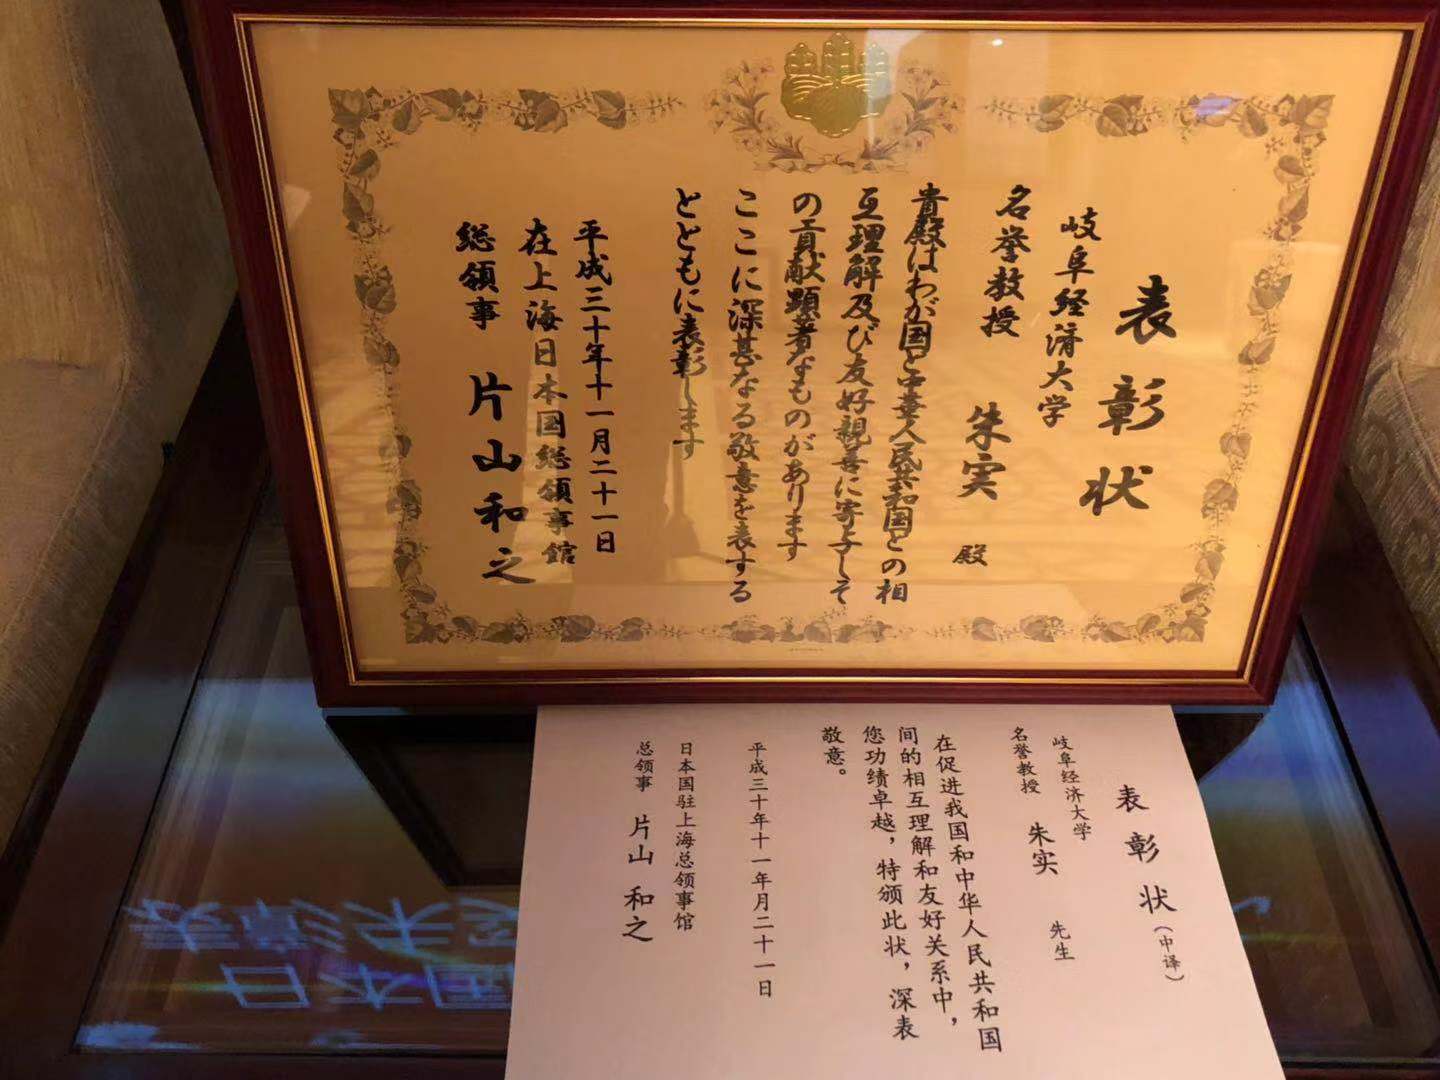 表彰状
岐阜経済大学
名誉教授 朱実 殿
貴殿はわが国と中華人民共和国との相
互理解及び友好親善に寄与しそ
の貢献顕著なものがあります
ここに深甚なる敬意を表する
とともに表彰します
平成三十年十一月二十一日
在上海日本国総領事館
総領事 片山和之
表彰状（中译）
岐阜经济大学
名誉教授 朱实 先生
在促进我国和中华人民共和国
间的相互理解和友好关系中，
您功绩卓越，特颁此状，深表
敬意。
平成三十年十一年月二十一日
日本国驻上海总领事馆
总领事 片山 和之
日本国